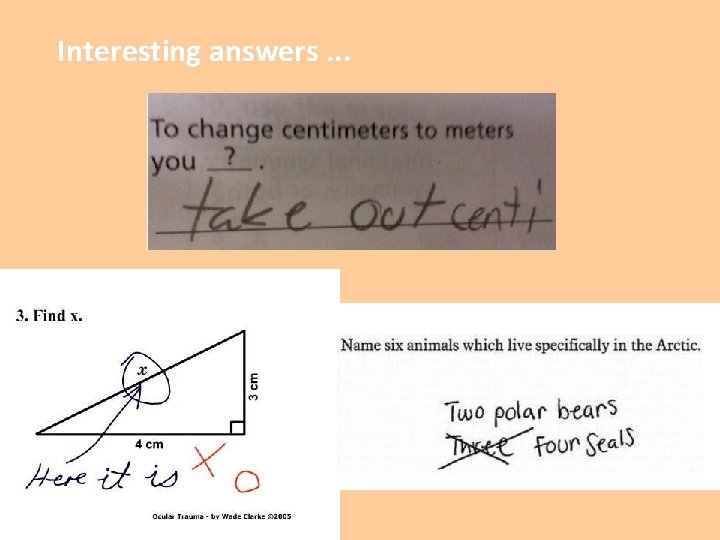 Interesting answers ...
To change centimeters to meters
you ? .
take out centi
3. Find x.
x
3 cm
4 cm
Here it is X
O
Ocular Trauma - by Wade Clarke ©2005
Name six animals which live specifically in the Arctic.
Two polar bears
Three Four Seals